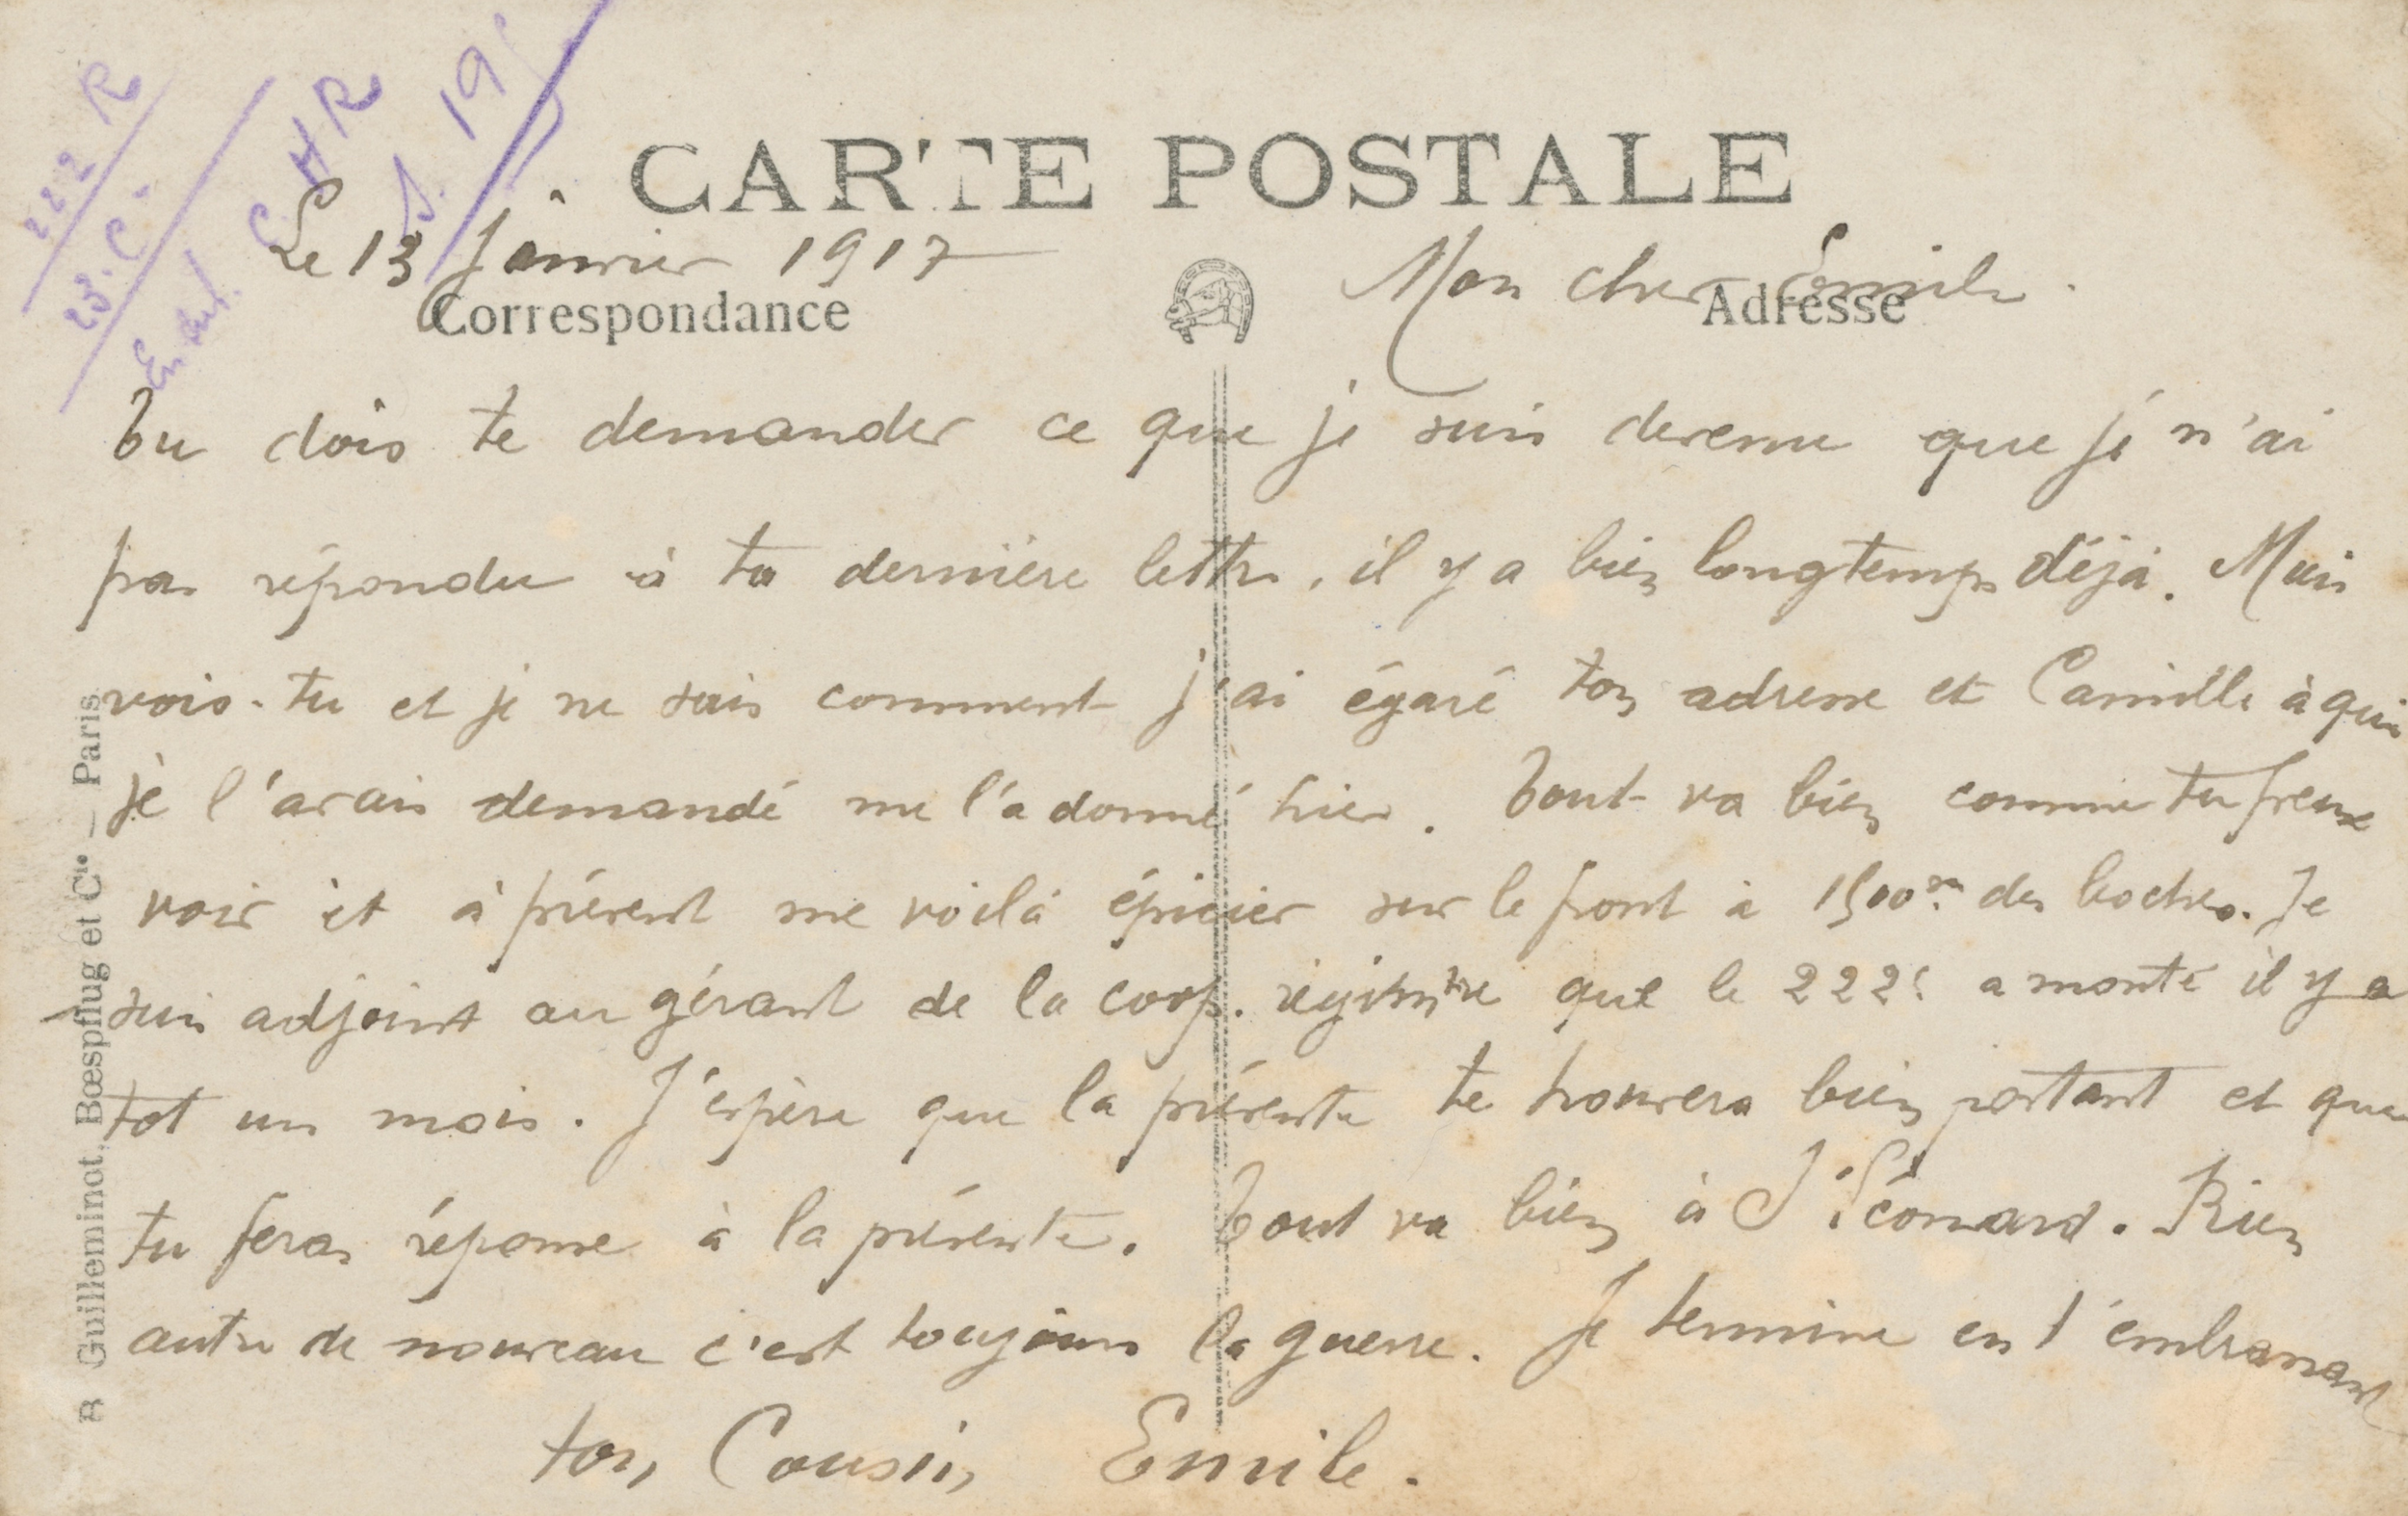 222 R
23e Cie
C. H R
S. 19
CARTE POSTALE
Le 13 Janvier 1917
Mon cher Emile.
Correspondance
Adresse
Tu dois te demander ce que je suis devenu que je n'ai
pas répondu à ta dernière lettre, il y a bien longtemps déjà. Mais
vois-tu et je ne sais comment j'ai égaré ton adresse et Camille à qui
je l'avais demandé me l'a donné hier. Tout va bien comme tu peux
voir et à présent me voilà épicier sur le front à 1500m des boches. Je
suis adjoint au gérant de la coop. régimtre que le 222e a monté il y a
tot un mois. J'espère que la présente te trouvera bien portant et que
tu feras réponse à la présente. Tout va bien à St Léonard. Rien
autre de nouveau c'est toujours la guerre. Je termine en t'embrassant
ton Cousin Emile.
B Guilleminot, Bœspflug et Cie — Paris